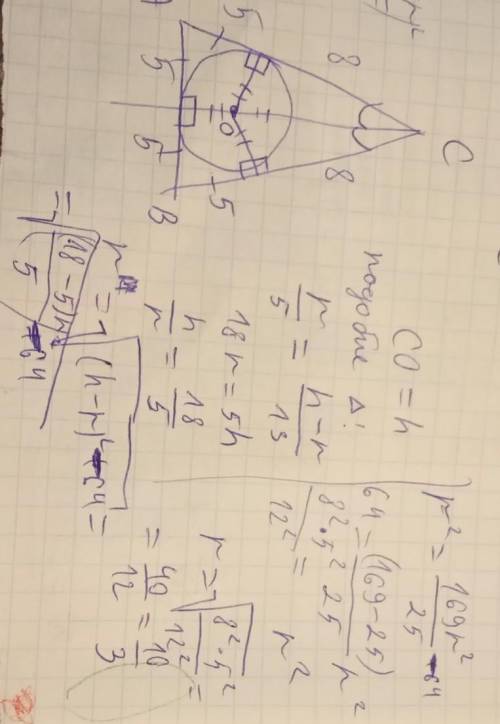 C
8
8
5
5
5
5
O
B
CO = h
подобие Δ:
r/5 = (h-r)/13
18r = 5h
h/r = 18/5
r = √((h-r)² - 64) =
= √((18-5)r/5 - 64
r² = 169r²/25 - 64
64 = (169-25)/25 r²
8²·5²/12² = r²
r = √(8²·5²/12²) =
= 40/12 = 10/3